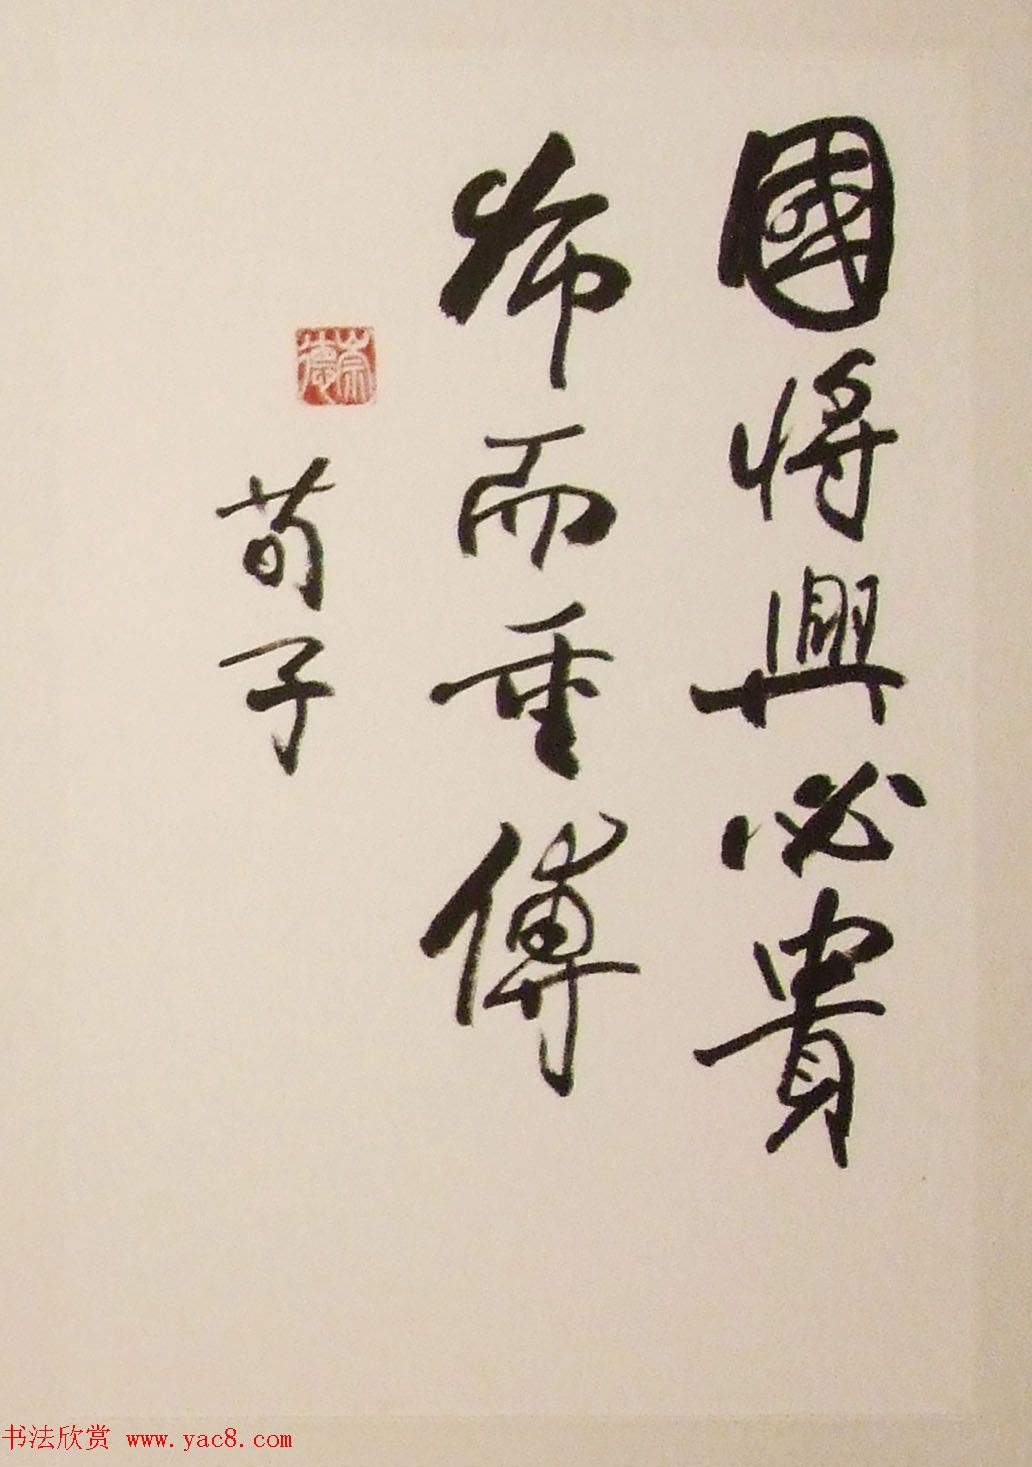 國將興必貴
師而重傅
荀子
崇德
书法欣赏 www.yac8.com